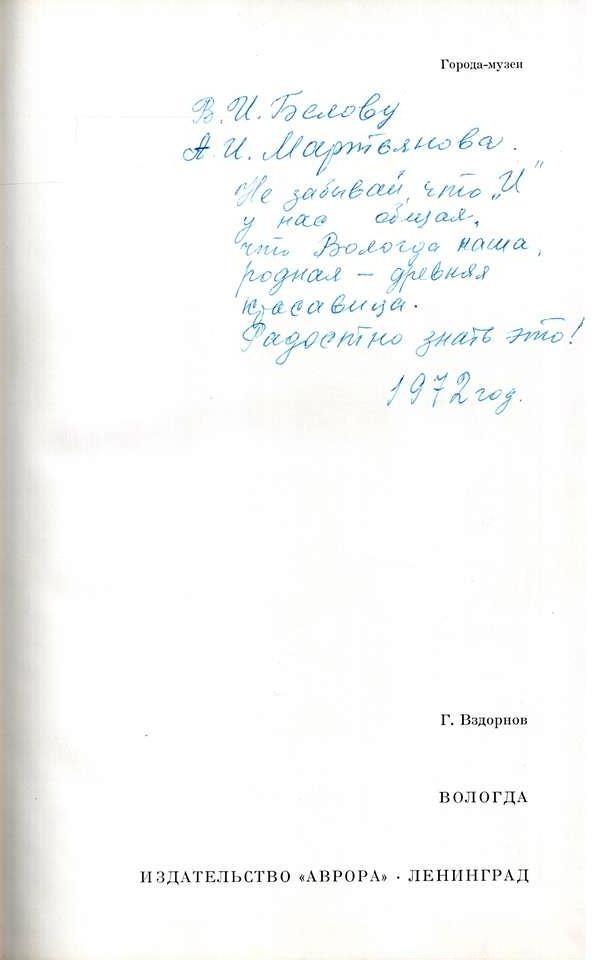 Города-музеи
В. И. Белову
А. И. Мартьянова.
Не забывай, что „И"
у нас общая,
что Вологда наша,
родная — древняя
красавица.
Радостно знать это!
1972 год.
Г. Вздорнов
ВОЛОГДА
ИЗДАТЕЛЬСТВО «АВРОРА» · ЛЕНИНГРАД